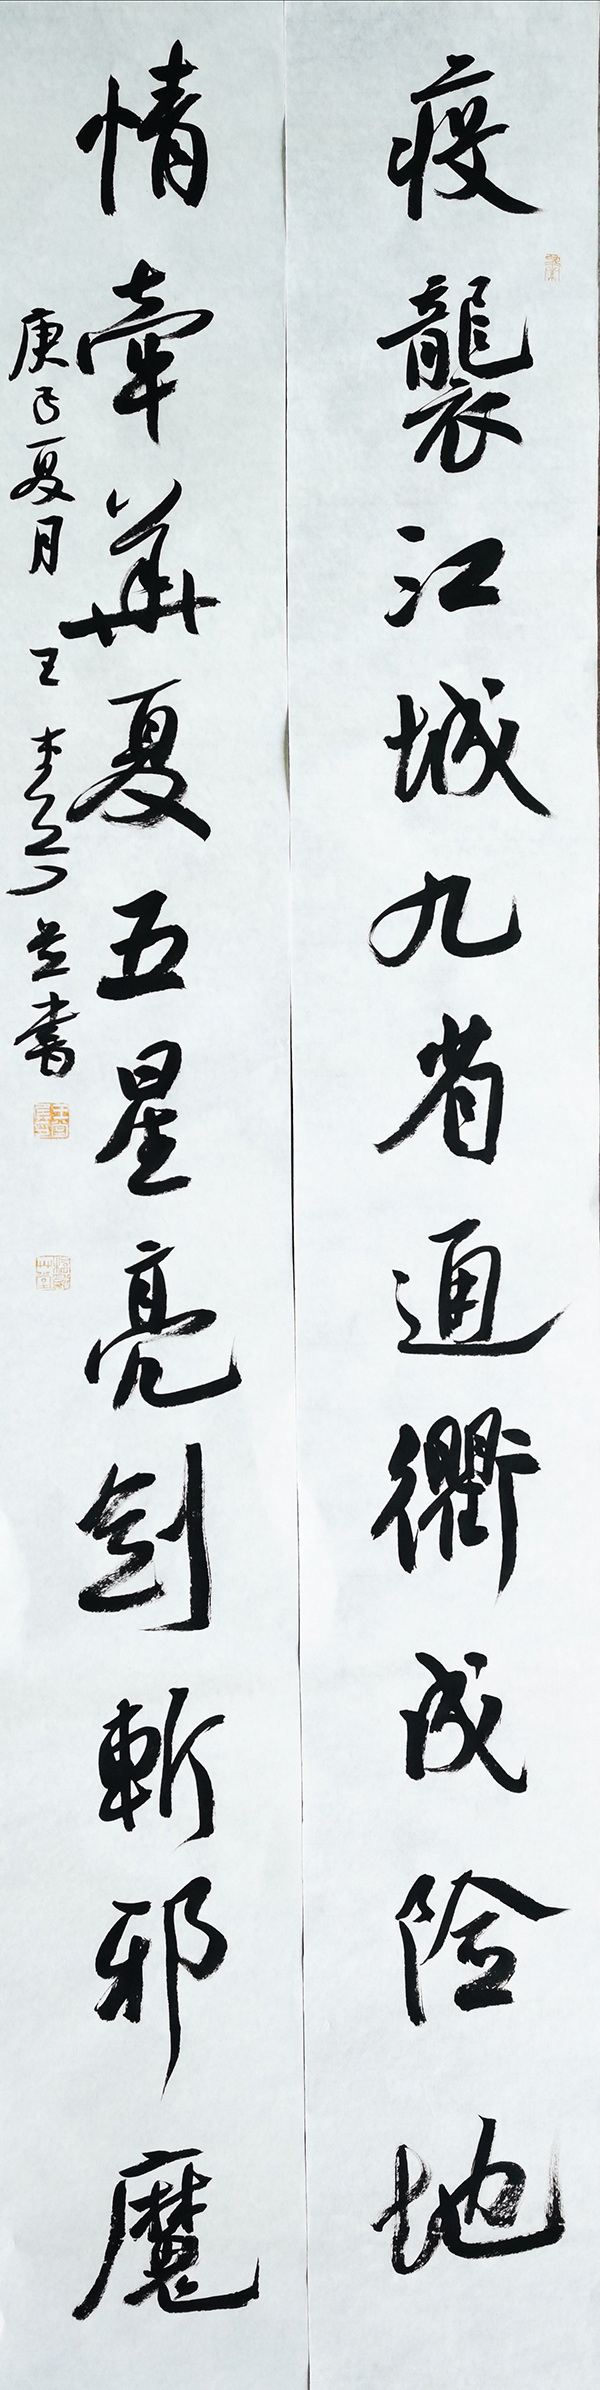 疫襲江城九省通衢成险地
情牽華夏五星亮剑斬邪魔
庚子夏月 王 書